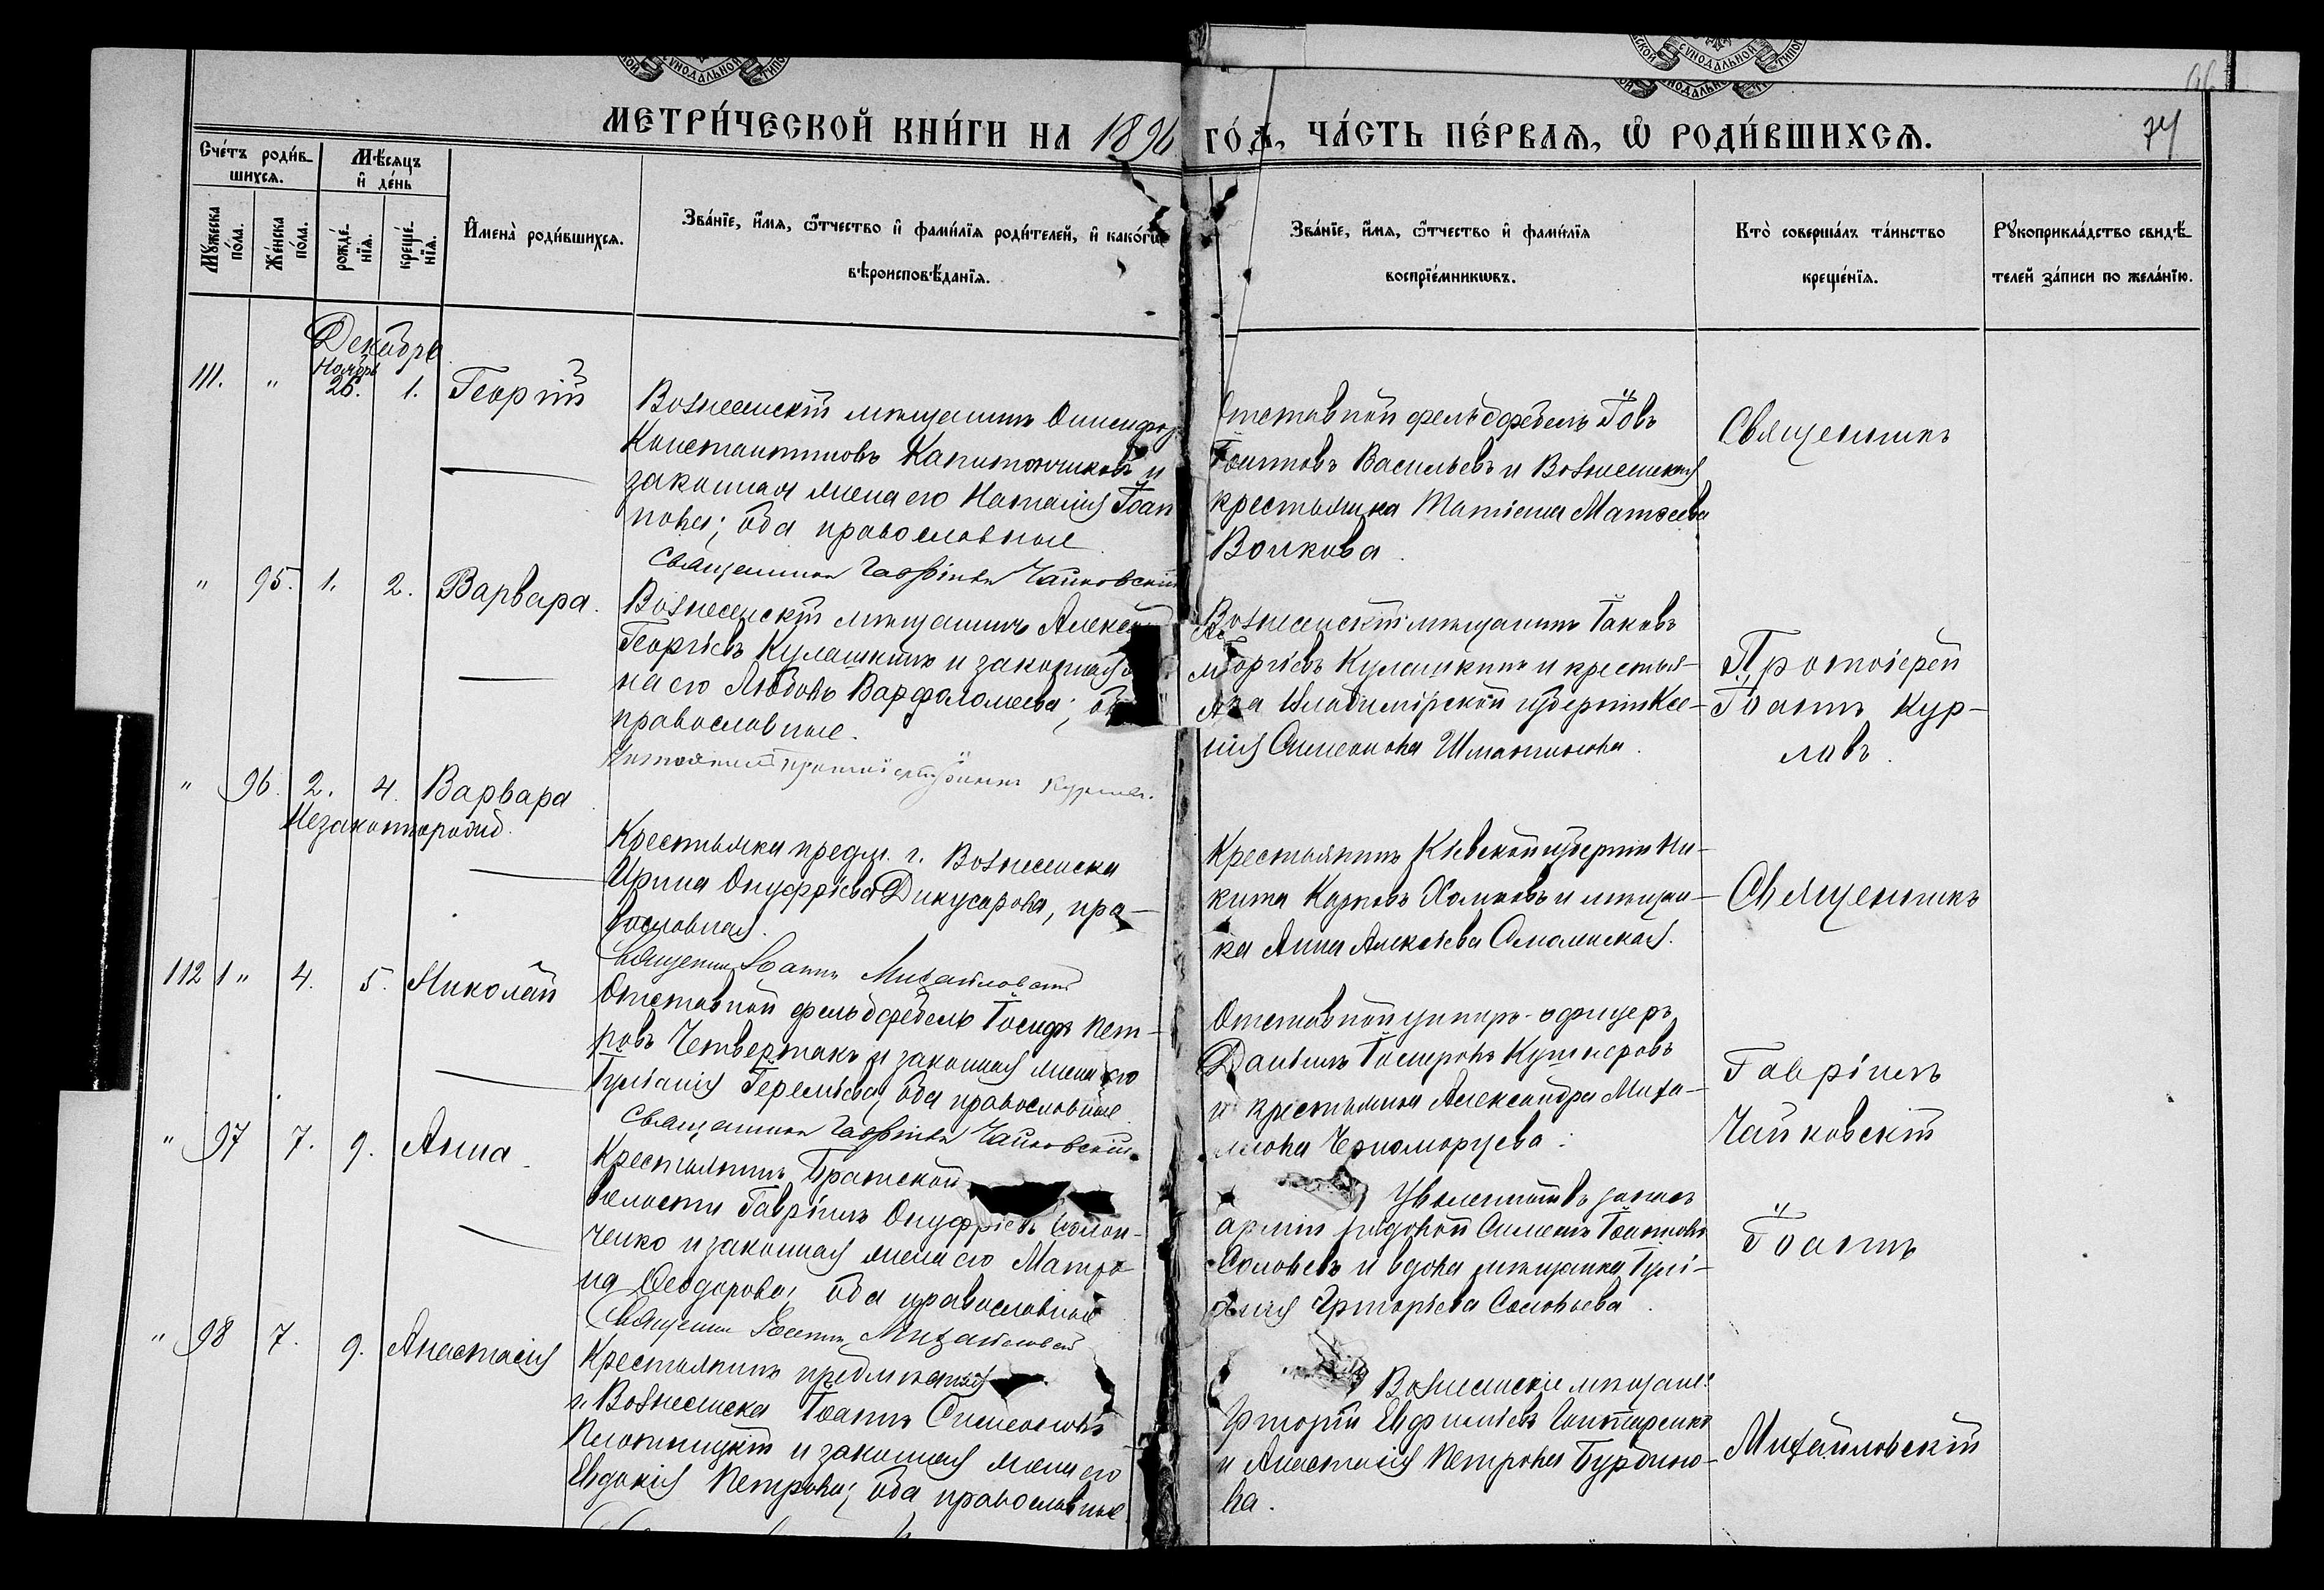 МЕТРИ́ЧЕСКОЙ КНИ́ГИ НА 1896 ГО́Д, ЧА́СТЬ ПЕ́РВАЯ, Ѡ РОДИ́ВШИХСЯ.
74
Сче́тъ роди́в-
шихся.
Мѣсяцъ
и де́нь
Мꙋжеска
по́ла.
Же́нска
по́ла.
рожде́-
нїя.
креще́-
нїя.
И҆мена̀ роди́вшихся.
Зва́нїе, и҆́мя, ѻ҆́тчество и҆ фами́лїя роди́телей, и҆ како́гѡ
вѣроисповѣ́данїя.
Зва́нїе, и҆́мя, ѻ҆́тчество и҆ фами́лїя
воспрїе́мникѡвъ.
Кто̀ соверша́лъ та́инство
креще́нїя.
Рꙋкоприкла́дство свидѣ́-
телей за́писи по жела́нїю.
Декабрь
111. " Ноябрь 26. 1. Георгій
Вознесенскій мѣщанинъ Онисифор
Константиновъ Капитончиковъ и
законная жена его Наталія Іоан
нова; оба православные
Священникъ Гавріилъ Чайковскій
Отставной фельдфебель Іовъ
Іоанновъ Васильевъ и Вознесенская
крестьянка Татіана Матѳеева
Волкова.
Священникъ
" 95. 1. 2. Варвара.
Вознесенскій мѣщанинъ Алексѣй
Георгіевъ Кулашкинъ и законная
на его Любовь Варфоломеева;
православные.
Протоіерей Іоаннъ Курлов.
Вознесенскій мѣщанинъ Іаковъ
Георгіевъ Кулашкинъ и крестья-
нка Владимірской губерніи Ксе-
нія Симеонова
Протоіерей
Іоаннъ Кур-
ловъ.
" 96. 2. 4. Варвара
Незаконнорожд.
Крестьянка предм. г. Вознесенска
Ирина Онуфріева Дикусарова, пра-
вославная.
Священникъ Іоаннъ Михайловскій
Крестьянинъ Кіевской губерніи Ни-
кита Карповъ и мѣщан-
ка Анна Алексіева Смоленская.
Священникъ
112 " 4. 5. Николай
Отставной фельдфебель Іосифъ Пет-
ровъ Четвертакъ и законная жена его
Іуліанія Іереміева; оба православные
Священникъ Гавріилъ Чайковскій.
Отставной унтеръ-офицеръ
Даніилъ Кушнеровъ
и крестьянка Александра Миха-
Черноморцева.
Гавріилъ
Чайковскій
" 97 7. 9. Анна.
Крестьянинъ Братской
волости Гавріилъ Онуфріевъ
ченко и законная жена его Матро-
на Ѳеодорова; оба православные
Священникъ Іоаннъ Михайловскій
Уволенный въ запасъ
арміи рядовой Симеонъ Іоанновъ
Соловьевъ и вдова мѣщанка Іулі-
анія Григоріева Соловьева.
Іоаннъ
" 98 7. 9. Анастасія
Крестьянинъ предмѣстья
г. Вознесенска Іоаннъ Симеоновъ
Плотницкій и законная жена его
Евдокія Петрова; оба православные.
Вознесенскіе мѣщане:
Григорій Евфиміевъ
и Анастасія Петрова Бурдино-
ва.
Михайловскій